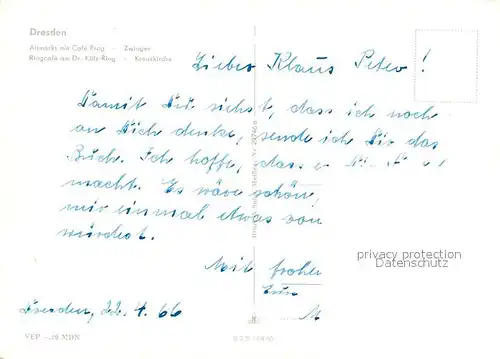 Dresden
Altmarkt mit Café Prag - Zwinger
Ringcafé am Dr.-Külz-Ring - Kreuzkirche
Lieber Klaus Peter!
Damit Du siehst, dass ich noch
an Dich denke, sende ich Dir das
Buch. Ich hoffe, dass
macht. Es wäre schön,
mir einmal etwas von
würdest.
Mit frohen
Dresden, 22.4.66
VEP -.10 MDN
privacy protection
Datenschutz